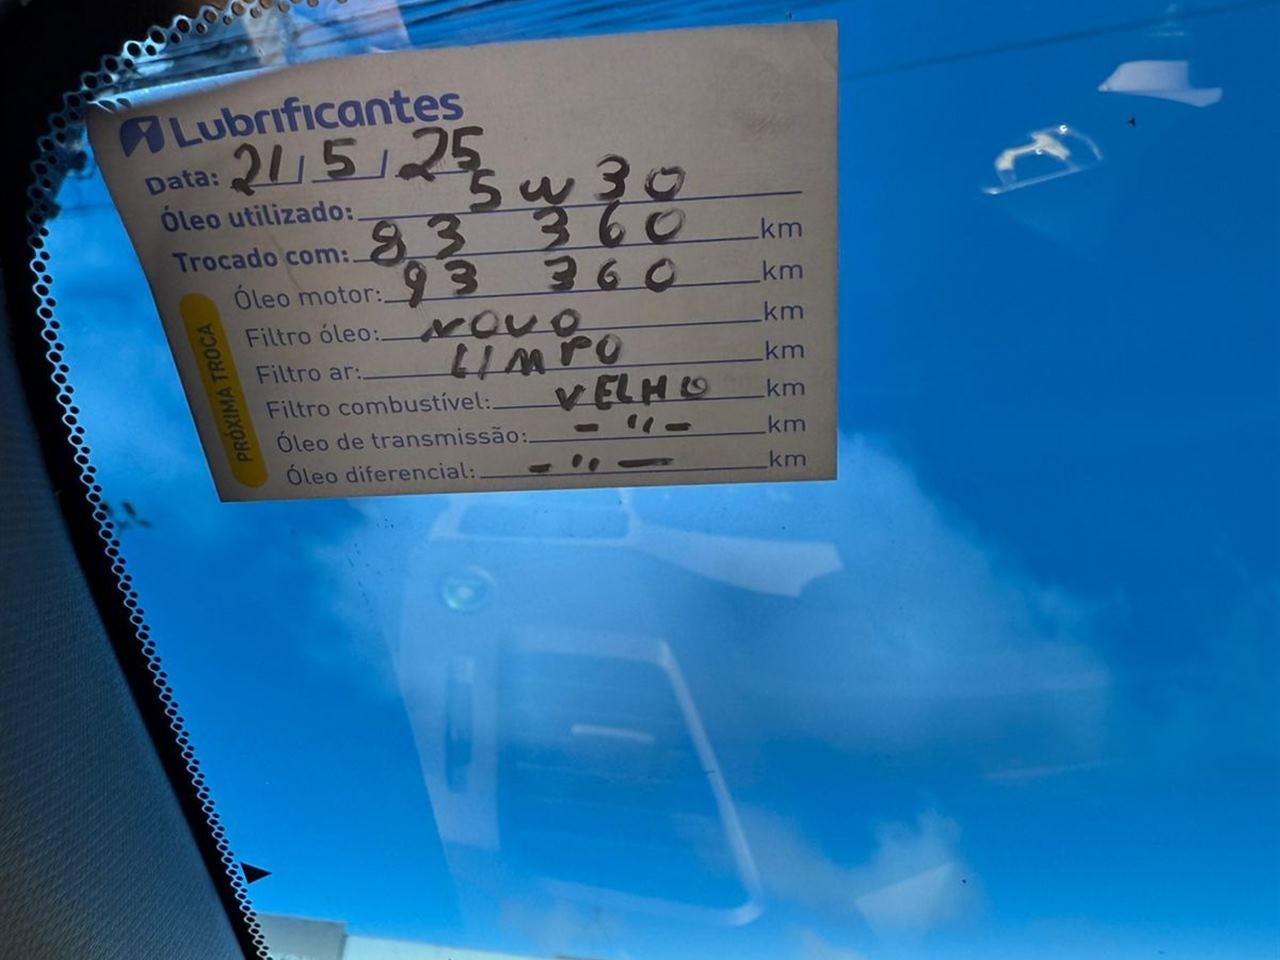 Lubrificantes
Data: 21/5/25
Óleo utilizado: 5W30
Trocado com: 83 360 km
PRÓXIMA TROCA
Óleo motor: 93 360 km
Filtro óleo: NOVO km
Filtro ar: LIMPO km
Filtro combustível: VELHO km
Óleo de transmissão: - " - km
Óleo diferencial: - " - km